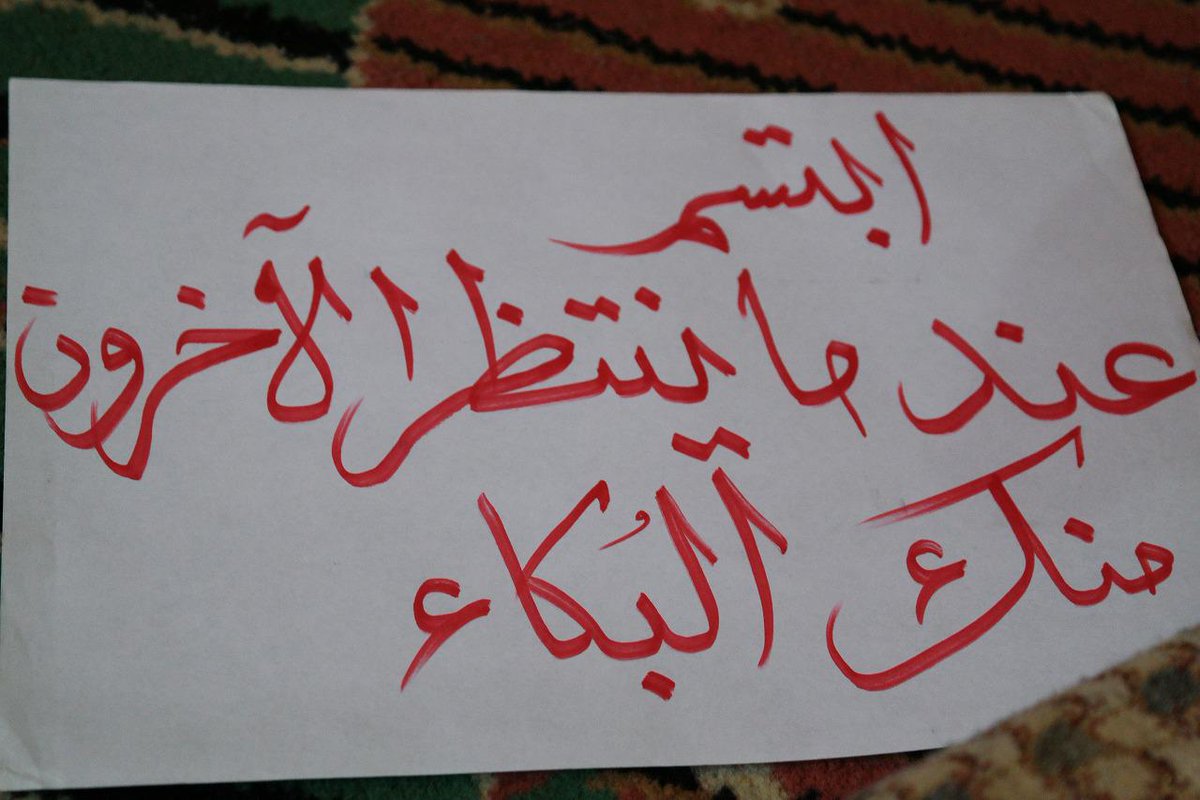 ابتسم
عند ما ينتظر الآخرون
منك البُكاء